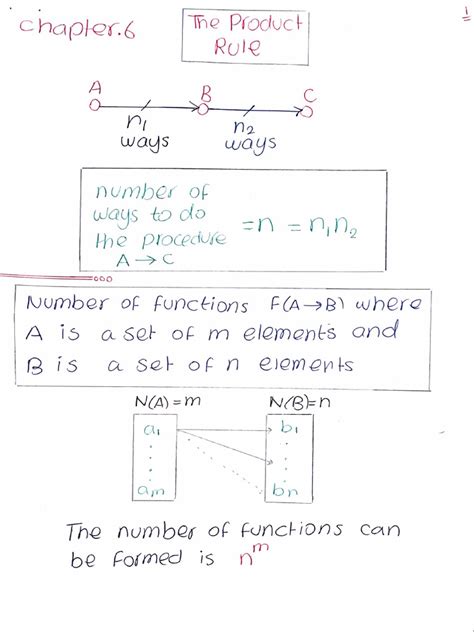 1
chapter.6
The Product
Rule
A B C
n₁ n₂
ways ways
number of
ways to do
the procedure = n = n₁n₂
A → C
Number of functions F(A→B) where
A is a set of m elements and
B is a set of n elements
N(A) = m N(B)=n
a₁ b₁
am bn
The number of functions can
be formed is nᵐ